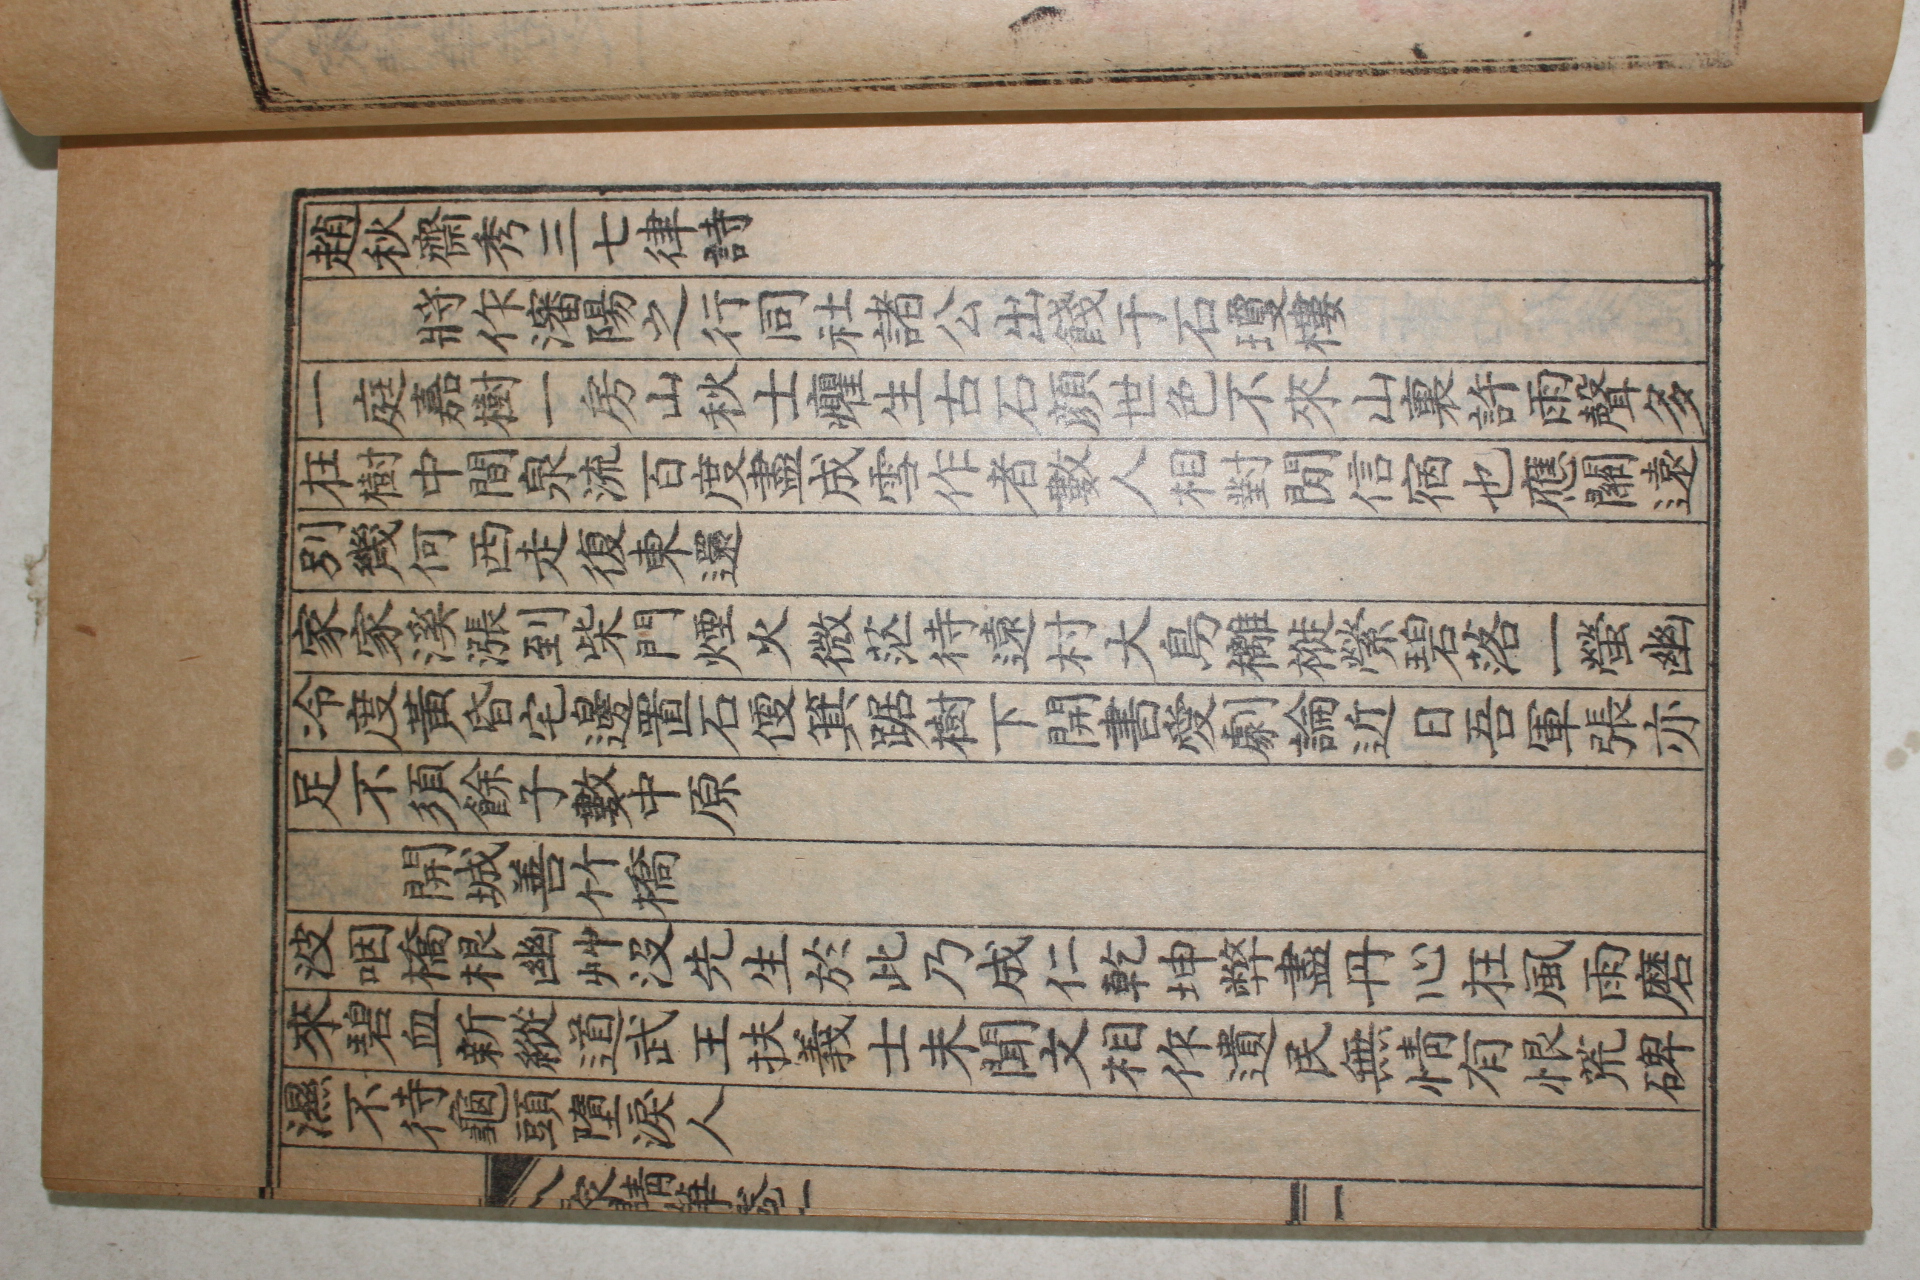 趙秋齋秀三七律詩
將作瀋陽之行同社諸公出餞于石瓊樓
一庭嘉樹一房山秋士癯生古石顔世色不來山裏許雨聲多
在樹中間泉流百度盡成雪作者數人相對閒信宿也應關遠
別幾何西走復東還
家家溪漲到柴門煙火微茫待遠村大鳥䙰褷縈碧落一螢幽
冷度黃昏宅邊置石便箕踞樹下開書愛劇論近日吾軍張亦
足不須餘子數中原
開城善竹橋
波咽橋根幽艸沒先生於此乃成仁乾坤弊盡丹心在風雨磨
來碧血新縱道武王扶義士未聞文相作遺民無情有恨荒碑
濕不待龜頭墮淚人
八家精華卷一
一